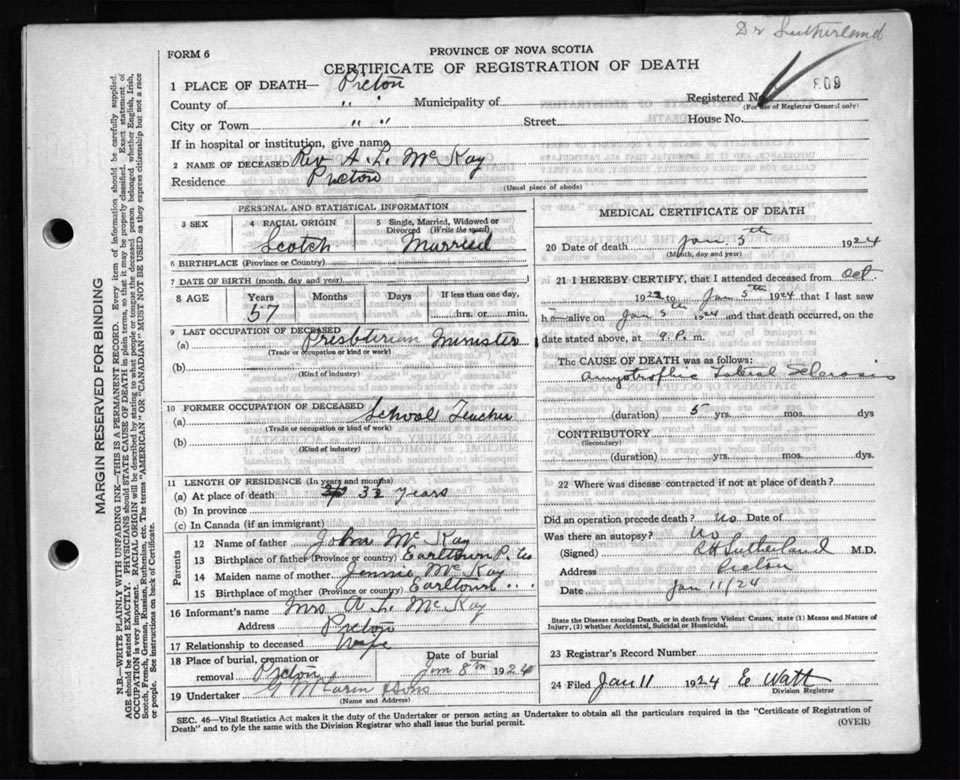 Dr Sutherland
FORM 6
PROVINCE OF NOVA SCOTIA
CERTIFICATE OF REGISTRATION OF DEATH
1 PLACE OF DEATH— Pictou
809
Registered No.
(For use of Registrar General only)
County of " " Municipality of
City or Town " " Street House No.
If in hospital or institution, give name
2 NAME OF DECEASED Rev A. L. McKay
Residence Pictou
(Usual place of abode)
PERSONAL AND STATISTICAL INFORMATION
3 SEX
4 RACIAL ORIGIN
Scotch
5 Single, Married, Widowed or
Divorced (Write the word)
Married
6 BIRTHPLACE (Province or Country)
7 DATE OF BIRTH (month, day and year)
8 AGE
Years
57
Months
Days
If less than one day,
hrs. or min.
9 LAST OCCUPATION OF DECEASED
(a) Presbterian Minister
(Trade or occupation or kind or work)
(b)
(Kind of industry)
10 FORMER OCCUPATION OF DECEASED
(a) School Teacher
(Trade or occupation or kind of work)
(b)
(Kind of industry)
11 LENGTH OF RESIDENCE (In years and months)
(a) At place of death 32 years
(b) In province
(c) In Canada (if an immigrant)
Parents
12 Name of father John McKay
13 Birthplace of father (Province or country) Earltown P. Co
14 Maiden name of mother Jennie McKay
15 Birthplace of mother (Province or country) Earltown " "
16 Informant's name Mrs A. L. McKay
Address Pictou
17 Relationship to deceased Wife
18 Place of burial, cremation or
removal Pictou
Date of burial
Jan 8th 1924
19 Undertaker
(Name and Address)
MEDICAL CERTIFICATE OF DEATH
20 Date of death Jan 5th 1924
(Month, day and year)
21 I HEREBY CERTIFY, that I attended deceased from Oct
to Jan 5th 1924 that I last saw
h alive on Jan 5th 1924 and that death occurred, on
date stated above, at 9 P. m.
The CAUSE OF DEATH was as follows:
Amyotroflic Sclerosis
(duration) 5 yrs. mos. dys
CONTRIBUTORY
(Secondary)
(duration) yrs. mos. dys.
22 Where was disease contracted if not at place of death?
Did an operation precede death? No Date of
Was there an autopsy? No
(Signed) Sutherland M.D.
Address Pictou
Date Jan 11/24
State the Disease causing Death, or in death from Violent Causes, state (1) Means and Nature of
Injury, (2) whether Accidental, Suicidal or Homicidal.
23 Registrar's Record Number
24 Filed Jan 11 1924 E Watt
Division Registrar
SEC. 46—Vital Statistics Act makes it the duty of the Undertaker or person acting as Undertaker to obtain all the particulars required in the "Certificate of Registration of
Death" and to fyle the same with the Division Registrar who shall issue the burial permit.
(OVER)
MARGIN RESERVED FOR BINDING
N.B.—WRITE PLAINLY WITH UNFADING INK—THIS IS A PERMANENT RECORD. Every item of information should be carefully supplied.
AGE should be stated EXACTLY. PHYSICIANS should STATE CAUSE OF DEATH in plain terms, so that it may be properly classified. Exact statement of
OCCUPATION is very important. RACIAL ORIGIN will be described by stating to what people or tongue the deceased person belonged whether English, Irish,
Scotch, French, German, Russian, Ruthenian, etc. The terms "AMERICAN" OR "CANADIAN" MUST NOT BE USED as they express citizenship but not a race
or people. See instructions on back of Certificate.